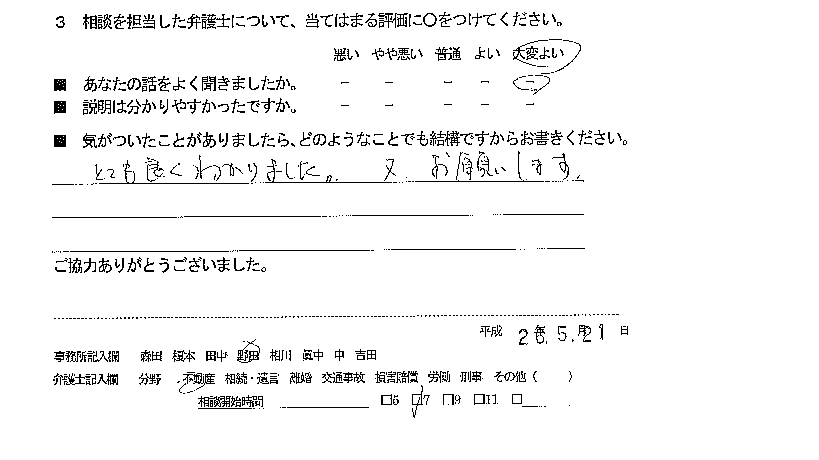 3 相談を担当した弁護士について、当てはまる評価に○をつけてください。
悪い やや悪い 普通 よい 大変よい
■ あなたの話をよく聞きましたか。 － － － － －
■ 説明は分かりやすかったですか。 － － － － －
■ 気がついたことがありましたら、どのようなことでも結構ですからお書きください。
とても良くわかりました。 又 お願いします。
ご協力ありがとうございました。
平成 26年5.月21日
事務所記入欄 森田 榎本 田中 野田 相川 眞中 中 吉田
弁護士記入欄 分野 不動産 相続・遺言 離婚 交通事故 損害賠償 労働 刑事 その他（ ）
相談開始時間 □5 □7 □9 □11 □